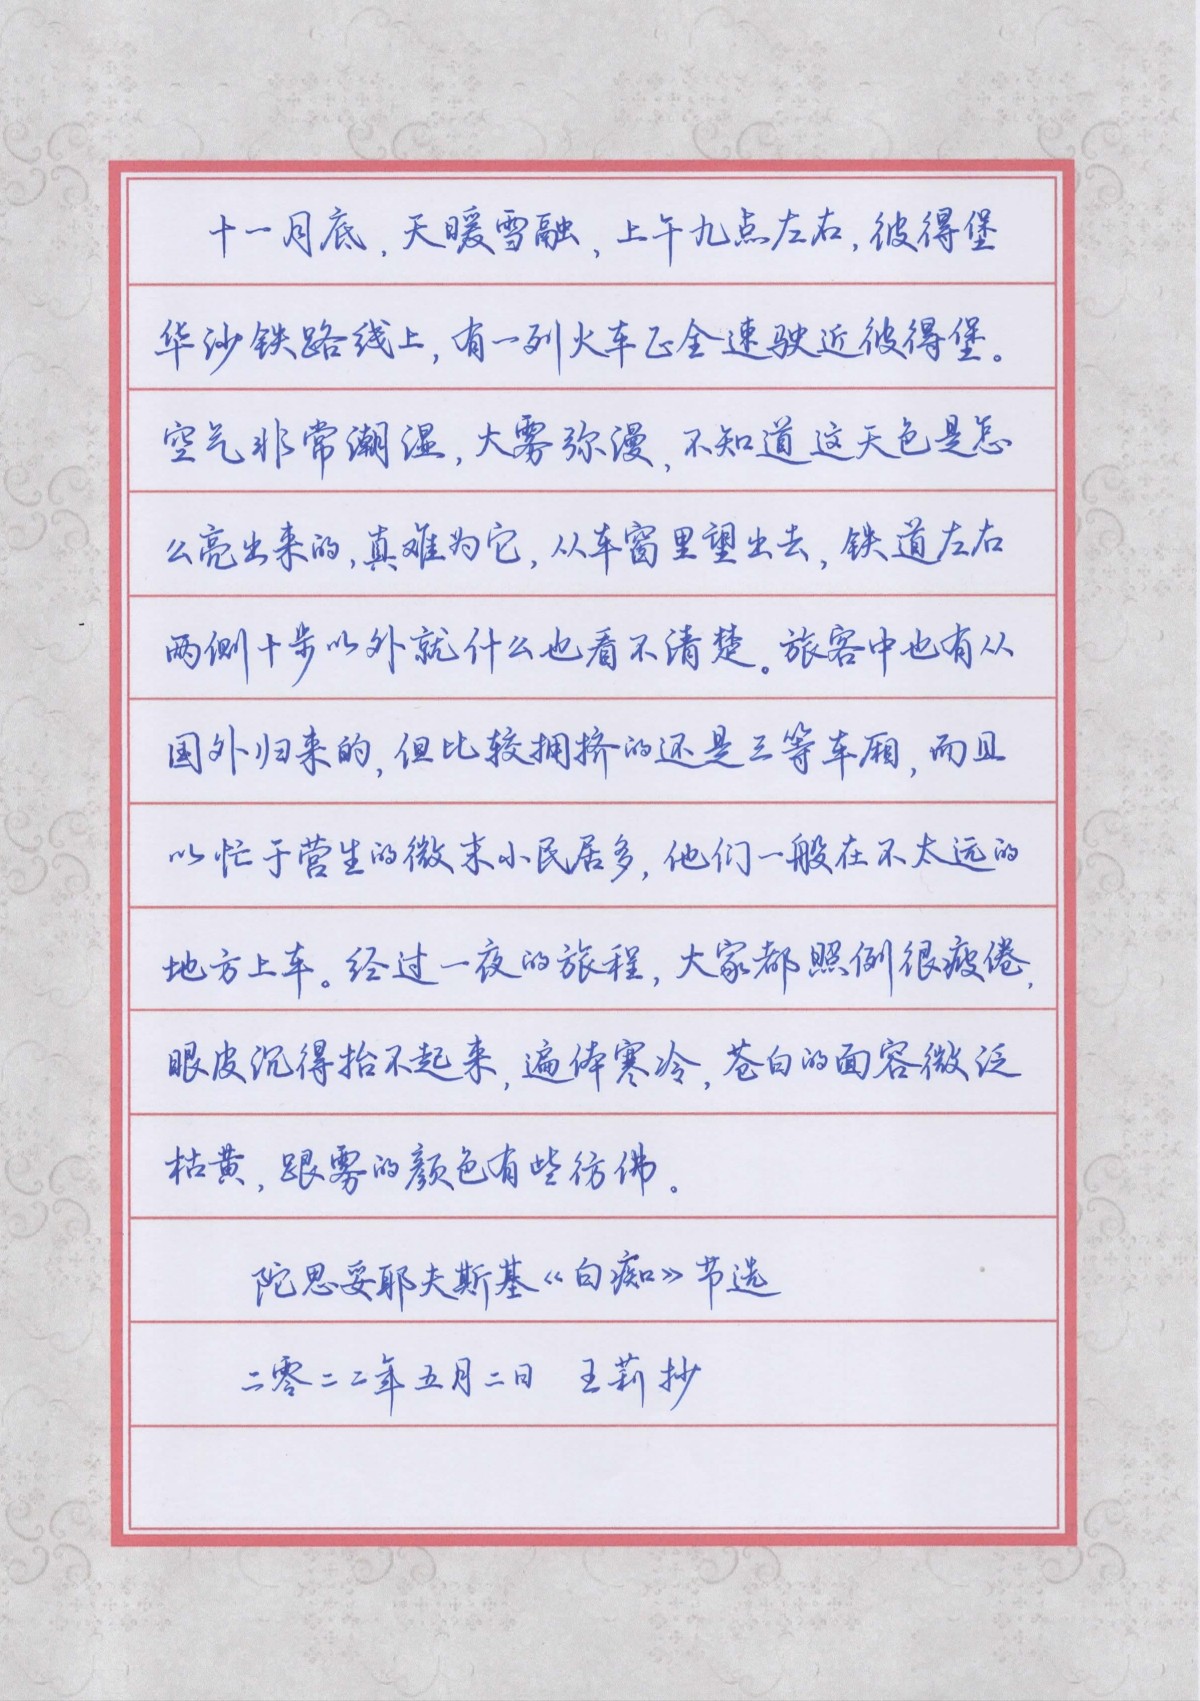 十一月底，天暖雪融，上午九点左右，彼得堡
华沙铁路线上，有一列火车正全速驶近彼得堡。
空气非常潮湿，大雾弥漫，不知道这天色是怎
么亮出来的，真难为它，从车窗里望出去，铁道左右
两侧十步以外就什么也看不清楚。旅客中也有从
国外归来的，但比较拥挤的还是三等车厢，而且
以忙于营生的微末小民居多，他们一般在不太远的
地方上车。经过一夜的旅程，大家都照例很疲倦，
眼皮沉得抬不起来，遍体寒冷，苍白的面容微泛
枯黄，跟雾的颜色有些仿佛。
陀思妥耶夫斯基《白痴》节选
二零二二年五月二日 王莉抄